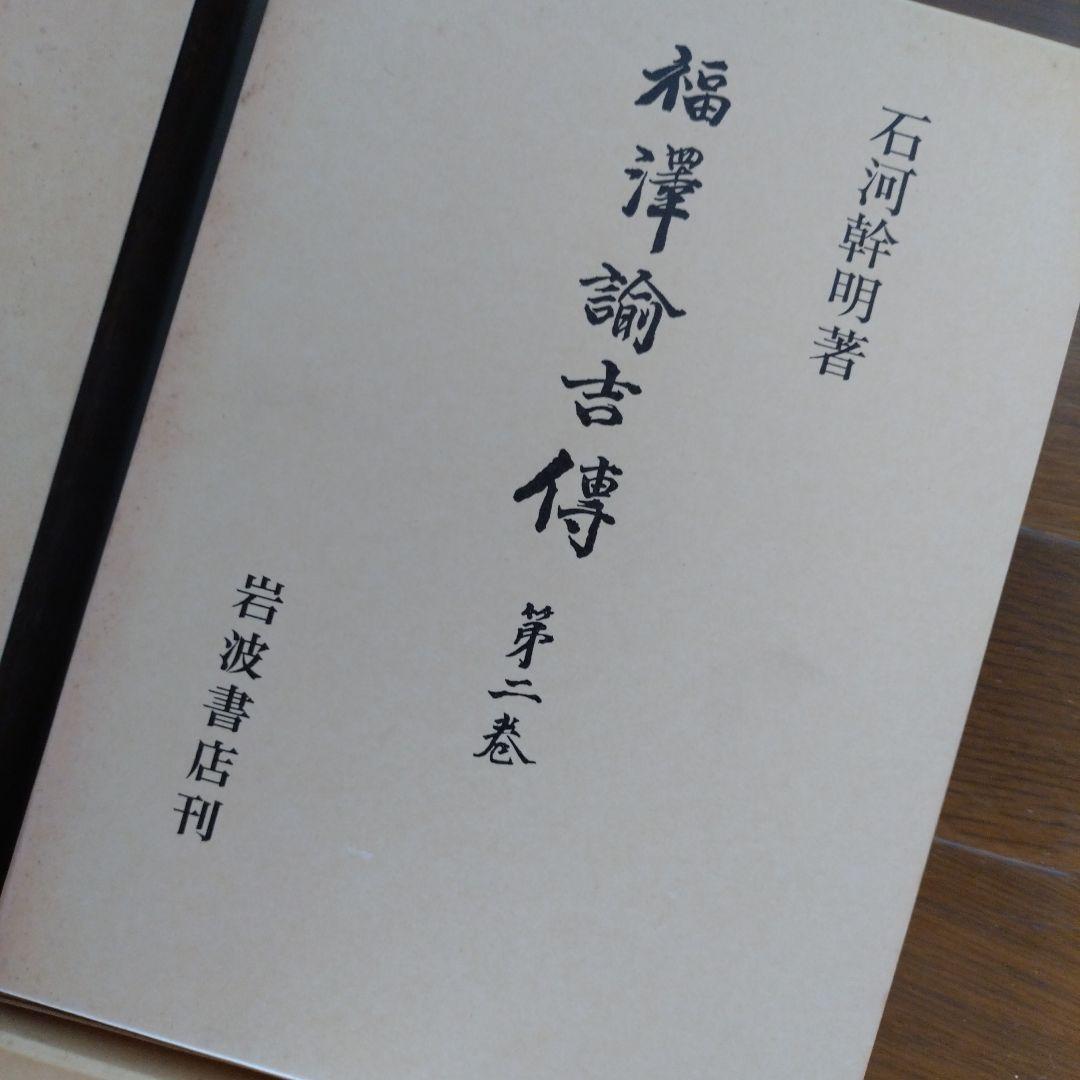 石河幹明著
福澤諭吉傳 第二卷
岩波書店刊